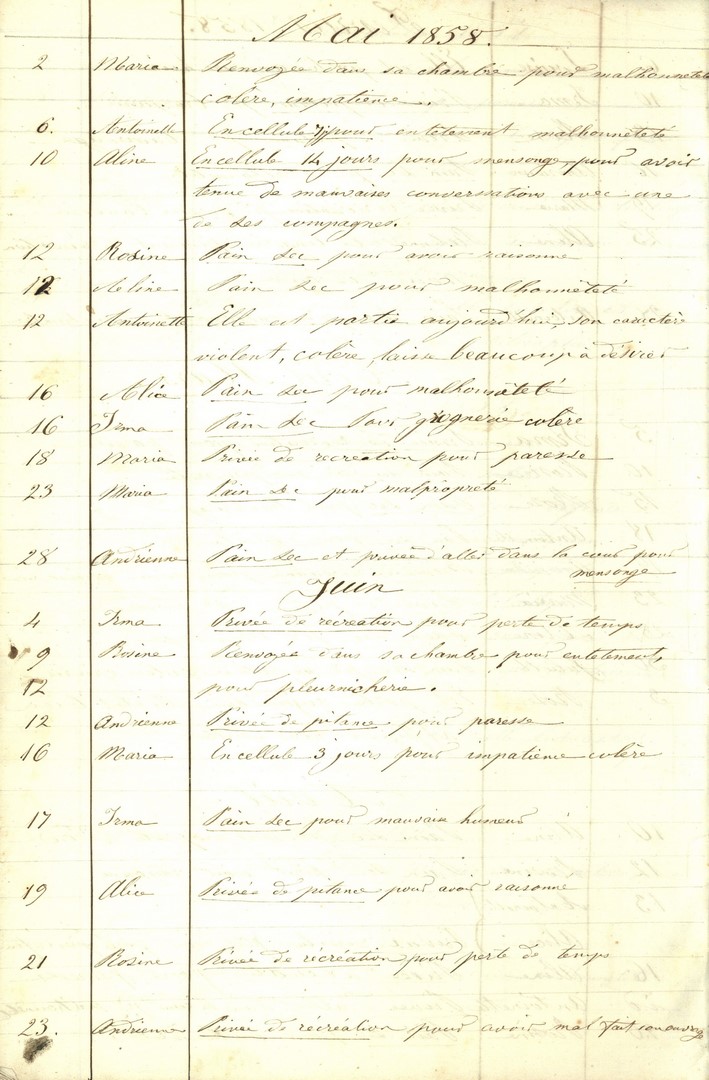 Mai 1858.
2 Maria Renvoyée dans sa chambre pour malhonneteté
colère, impatience.
6. Antoinette En cellule pour entetement malhonnêteté
10 Aline En cellule 14 jours pour mensonge, pour avoir
tenue de mauvaises conversations avec une
de ses compagnes.
12 Rosine Pain sec pour avoir raisonné
12 Aline Pain sec pour malhonnêteté
12 Antoinette Elle est partie aujourd'hui, son caractère
violent, colère, laisse beaucoup à désirer
16 Alice Pain sec pour malhonnêteté
16 Irma Pain sec pour grognerie colère
18 Maria Privée de recreation pour paresse
23 Maria Pain sec pour malpropreté
28 Andrienne Pain sec et privée d'aller dans la cour pour
mensonge
Juin
4 Irma Privée de récreation pour perte de temps
9 Rosine Renvoyée dans sa chambre pour entetement,
12 pour pleurnicherie.
12 Andrienne Privée de pitance pour paresse
16 Maria En cellule 3 jours pour impatience colère
17 Irma Pain sec pour mauvaise humeur
19 Alice Privée de pitance pour avoir raisonné
21 Rosine Privée de récréation pour perte de temps
23. Andrienne Privée de récréation pour avoir mal fait son ouvrage